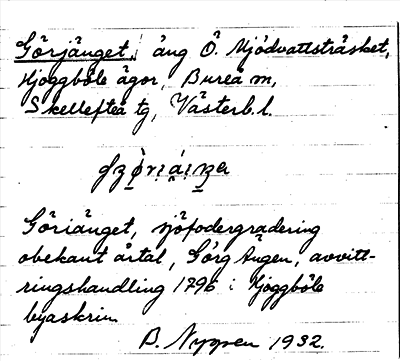 Görjänget, äng Ö. Mjödvattsträsket,
Hjoggböle ägor, Bureå sn,
Skellefteå tg, Västerb. l.
Göriänget, sjöfodergradering
obekant årtal, Görg Ängen, avvitt-
ringshandling 1796 i Hjoggböle
byaskrin.
B. Nygren 1932.